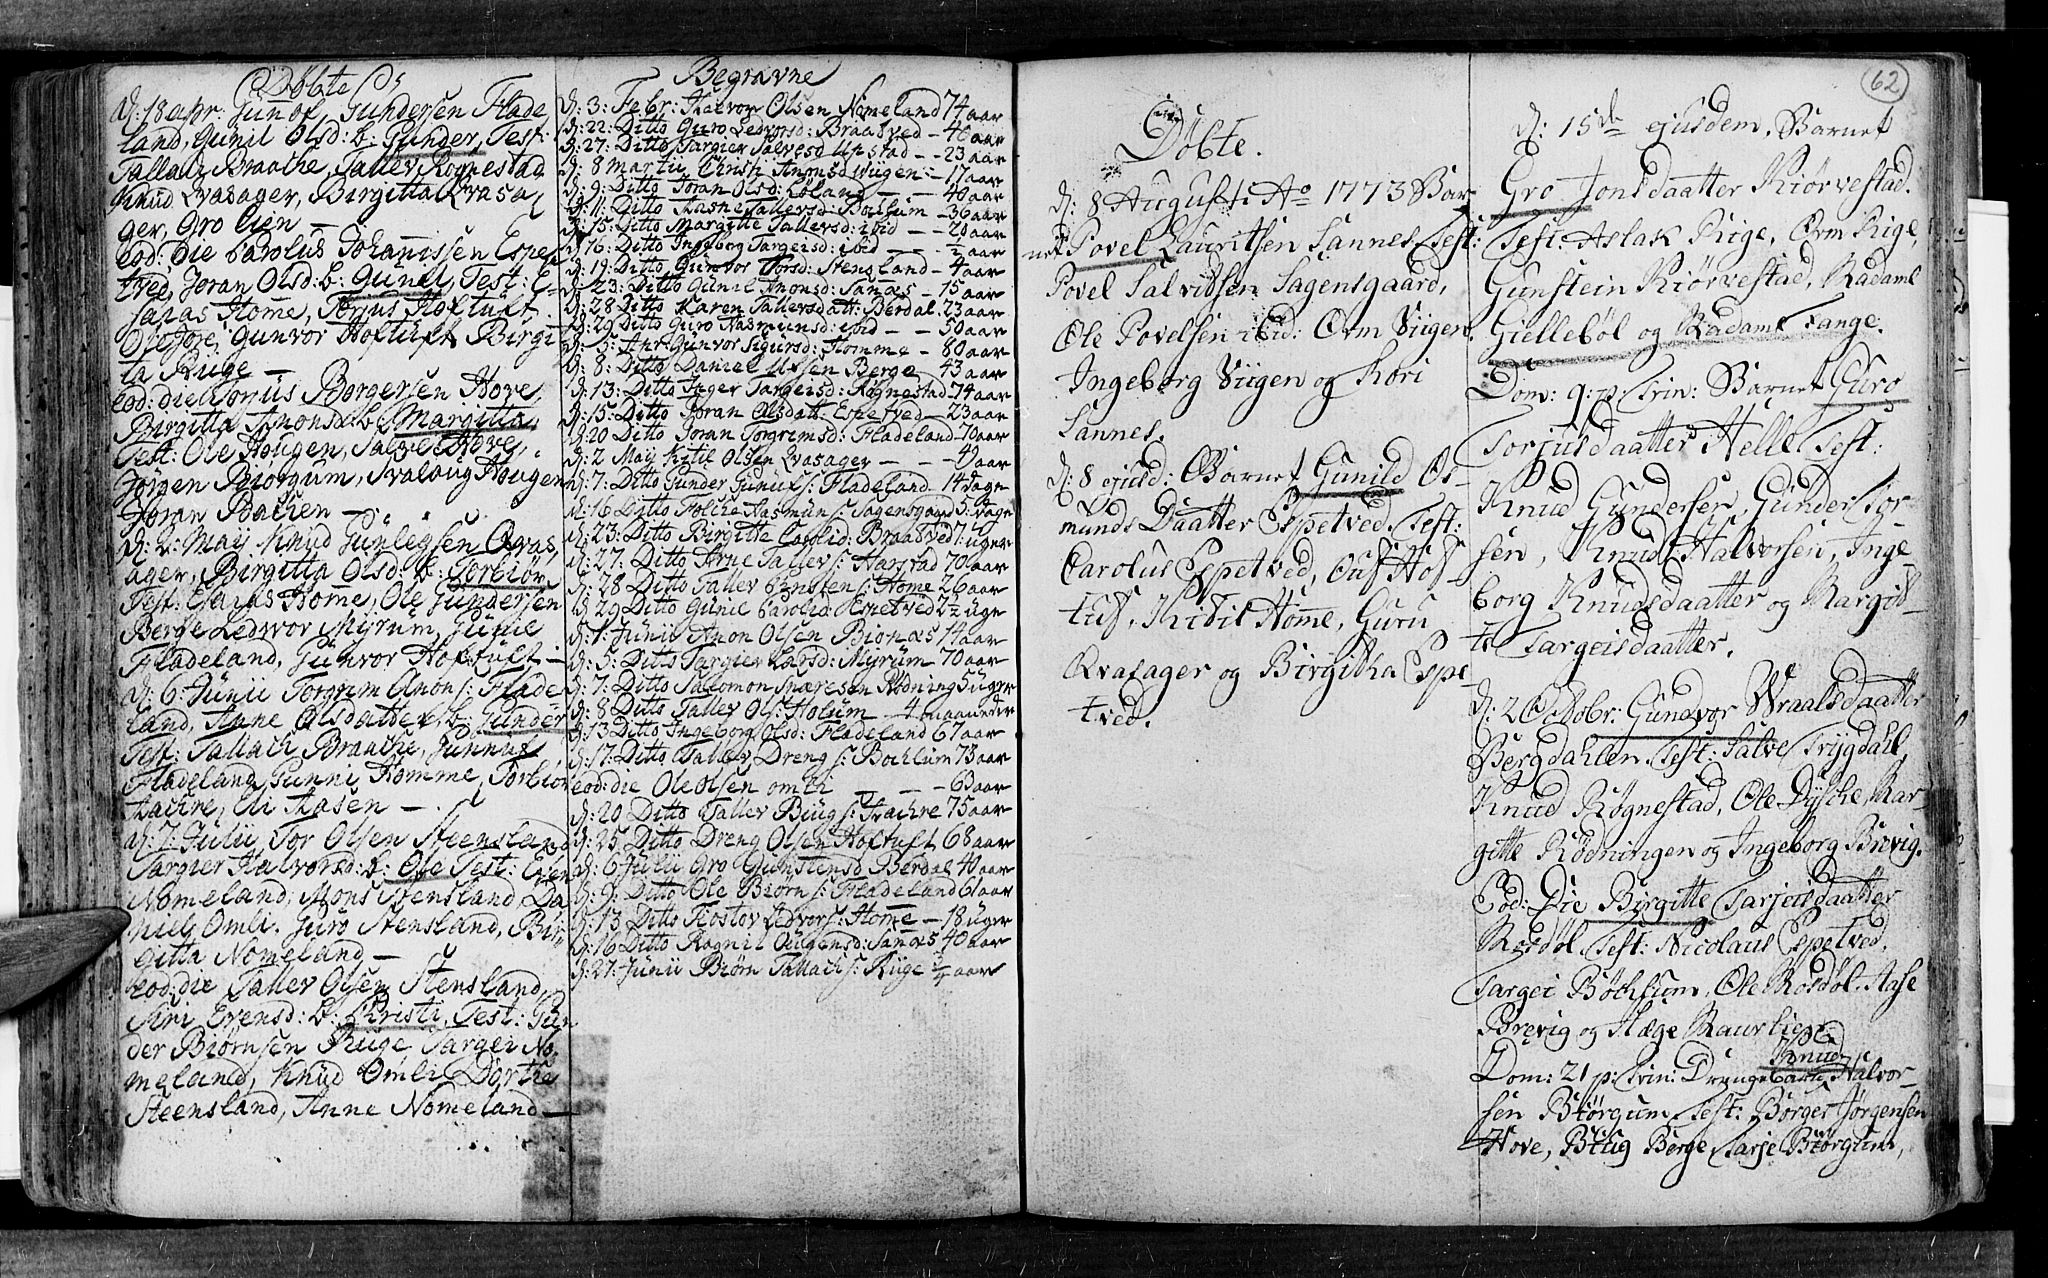 Døbte
d: 18 apr: Gunnof Gundersen Flade
land, Gunil Olsd: b: Gunder, Test:
Tallau Braache, Tallev Rognestad
Knud Qvasager, Birgitta Qvasa
ger, Gro lien —
eod: die Carolus Johannissen Espe
tved, Joran Olsd: b: Gunil, Test: E
saias Home, Torjus Hoftuft
Ole Gunvor Hoftuft Birgi
ta Ruge —
eod: die Jonus Borgersen Hove,
Birgitta Anonsd: b: Margitta,
Test: Ole Hougen, Salve Hove,
Jørgen Biorgum, Svalaug Hougen
Joran Bachen —
d: 2: May Knud Gunlegsen Qvas,
ager, Birgitta Olsd: b: Torbiør
Test: Esaias Home, Ole Gundersen
Berge Ledvor Myrum, Gunil
Fladeland, Gunvor Hoftuft —
d: 6 Junii Torgrim Anons: Flade
land, Anne Olsdatter b: Gunder
Test: Tallach Braache, Gunnuf
Fladeland, Gunni Homme, Torbior
Aachre, Eli Aasen —
d: 7: Julii Tor Olsen Steensland
Targier Halvorsd: b: Ole Test: Even
Nomeland, Mons Stensland, Da
niel Omli, Guro Stensland, Bir
gitta Nomeland —
eod: die Tallev Olsen Stensland,
Siri Evensd: b: Kristi, Test: Gun
der Biørnsen Ruge Targei No
meland, Knud Omli Dorthe
Steensland, Anne Nomeland —
Begravne
d: 3: Febr: Halvor Olsen Nomeland 74 aar
d: 22: Ditto Guro Ledvorsd: Braatved — 40 aar
d: 27: Ditto Targier Salvesd Upstad — 23 aar
d: 8 martii Christi Anonsd Viigen: — 17 aar
d: 9: Ditto Joran Olsd: Løland — 40 aar
d: 11: Ditto Aashe Tallevsd: Bochlum — 36 aar
d: 15: Ditto Margitte Tallevsd: ibid — 20 aar
d: 16: Ditto Ingeborg Targeisd: ibid — ½ aar
d: 19: Ditto Gunvor Torsd: Stensland — 4 aar
d: 23: Ditto Gunil Anonsd: Sanæs — 15 aar
d: 28 Ditto Karen Tallevsdatt: Berdal 23 aar
d: 29 Ditto Guro Aasmunsd: ibid — 50 aar
d: 5: Apr: Gunvor Sigursd: Homme — 80 aar
d: 8: Ditto Daniel Ulfsen Berge 43 aar
d: 13: Ditto Inger Targeisd: Rognestad 74 aar
d: 15: Ditto Joran Olsdatt: Espetved — 23 aar
d: 20 Ditto Joran Torgrimsd: Fladeland 70 aar
d: 2 May Kitil Olsen Qvasager — 40 aar
d: 7: Ditto Gunder Gunufs: Fladeland 14 dage
d: 16 Ditto Folche Aasmuns: Sagensgaard 5: dage
d: 23: Ditto Birgitte Carolid: Braatved 7 uger
d: 27: Ditto Torne Tallevs: Harstad 70 aar
d: 28 Ditto Tallev Ernsten s: Home 26 aar
d: 29 Ditto Gunil Carolid Espetved 2½ uge
d: 1: Junii Anon Olsen Bionæs 14 aar
d: 5: Ditto Targier Larsd: Myrum 70 aar
d: 7: Ditto Salomon Snæresen Rødning 5 uger
d: 8 Ditto Tallev Ols: Holum — 4 maaneder
d: 13 Ditto Ingeborg Olsd: Fladeland 67 aar
d: 17: Ditto Tallev Dreng s: Bochlum 73 aar
eod: die Ole Olsen omli — 63 aar
d: 20 Ditto Tallev Biug s: Aachre 75 aar
d: 25 Ditto Dreng Olsen Hoftuft 68 aar
d: 6 Julii Gro Gunstensd Berdal 40 aar
d: 9: Ditto Ole Biørn s: Fladeland 61 aar
d: 13 Ditto Aostov Ledvors: Home — 18 uger
d: 16 Ditto Ragnil Oulgensd: Sanæs 40 aar
d: 27: Junii Biørn Tallach s: Ruge ¾ aar
62
Døbte.
d: 8 August: Ao 1773 Bar
net Povel Lauritsen Sannes Test:
Povel Salvidsen Sagensgaard,
Ole Povelsen ibid: Orm Viigen
Ingeborg Viigen og Kori
Sannes.
d: 8 ejusd: Barnet Gunild Os-
munds Daatter Espetved, Test:
Carolus Espetved, Ouf Hof-
tuf, Kitil Home, Guru
Qvasager og Birgitha Espe-
tved.
d: 15de ejusdem, Barnet
Gro Jonsdaatter Kiørvestad.
Test: Aslak Rige, Orm Rige,
Gunstein Kiørvestad, Madame
Gielleból og Madame Lange.
Dom: 9: p: Trin: Barnet Guro
Torjusdaatter Helle Test:
Knud Gundersen, Gunder Tor
sen, Knud Halvorsen, Inge
borg Knudsdaatter og Margit-
te Targeisdaatter.
d: 2 Octobr: Gundvor Wraalsdaatter
Bergdahlen Test: Salve Trygdahl,
Knud Røgnestad, Ole Dysche, Mar-
gitte Rødningen og Ingeborg Brevig.
Eod: Die Birgitte Tarjeisdaatter
Mosdøl Test: Nicolaus Espetved.
Targei Bøchsum, Ole Mosdøl. Aase
Brevig og Hæge Maurlien
Knud
Dom: 21 p: Trin: Drenge barn Halvor-
sen Biørgum, Test: Børger Jørgensen
Hove, Biug Berge Tarje Biørgum,